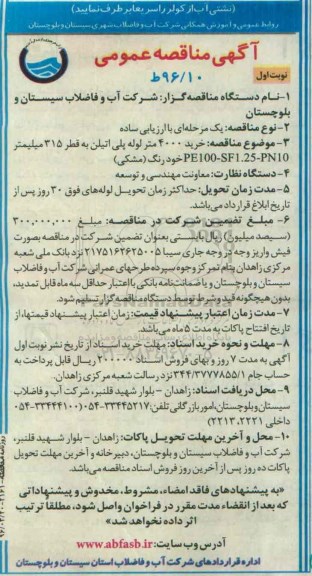 (نشتی آب از کولر را سریعا برطرف نمایید)
روابط عمومی و آموزش همگانی شرکت آب و فاضلاب شهری سیستان و بلوچستان
آگهی مناقصه عمومی
۹۶/۱۰ط
نوبت اول
۱-نام دستگاه مناقصه گزار: شرکت آب و فاضلاب سیستان و
بلوچستان
۲-نوع مناقصه: یک مرحله‌ای با ارزیابی ساده
۳-موضوع مناقصه: خرید ۴۰۰۰ متر لوله پلی اتیلن به قطر ۳۱۵ میلیمتر
PE100-SF1.25-PN10 خود رنگ (مشکی)
۴-دستگاه نظارت: معاونت مهندسی و توسعه
۵-مدت زمان تحویل: حداکثر زمان تحویل لوله‌های فوق ۳۰ روز پس از
تاریخ ابلاغ قرارداد می‌باشد.
۶- مبلغ تضمین شرکت در مناقصه: مبلغ ۳۰۰,۰۰۰,۰۰۰
(سیصد میلیون) ریال بایستی بعنوان تضمین شرکت در مناقصه بصورت
فیش واریز وجه در وجه جاری سیبا ۲۱۷۵۱۶۲۶۲۵۰۰۵ نزد بانک ملی شعبه
مرکزی زاهدان بنام تمرکز وجوه سپرده طرحهای عمرانی شرکت آب و فاضلاب
سیستان و بلوچستان و یا ضمانتنامه بانکی با اعتبار حداقل سه ماه قابل تمدید،
بدون هیچگونه قید و شرط توسط دستگاه مناقصه گزار تسلیم شود.
۷- مدت زمان اعتبار پیشنهاد قیمت: زمان اعتبار پیشنهاد قیمتها، از
تاریخ افتتاح پاکات به مدت ۵ ماه می‌باشد.
۸- مهلت و نحوه خرید اسناد: مهلت خرید اسناد از تاریخ نشر نوبت اول
آگهی به مدت ۷ روز و بهای فروش اسناد ۲۰۰۰۰۰ ریال قابل پرداخت به
حساب جام ۳۴۴/۳۷۷۷۸۵۵/۱ نزد رسالت شعبه مرکزی زاهدان.
۹- محل دریافت اسناد: زاهدان - بلوار شهید قلنبر، شرکت آب و فاضلاب
سیستان و بلوچستان، امور بازرگانی تلفن: ۳۳۴۴۵۲۱۷-۰۵۴ (۳۳۴۴۴۱۰۰-۰۵۴
داخلی ۲۲۲۱، ۲۲۱۳)
۱۰- محل و آخرین مهلت تحویل پاکات: زاهدان - بلوار شهید قلنبر،
شرکت آب و فاضلاب سیستان و بلوچستان، دبیرخانه و آخرین مهلت تحویل
پاکات ده روز پس از آخرین روز فروش اسناد مناقصه می‌باشد.
«به پیشنهادهای فاقد امضاء، مشروط، مخدوش و پیشنهاداتی
که بعد از انقضاء مدت مقرر در فراخوان واصل شود، مطلقاً ترتیب
اثر داده نخواهد شد»
آدرس وب سایت: www.abfasb.ir
اداره قراردادهای شرکت آب و فاضلاب استان سیستان و بلوچستان